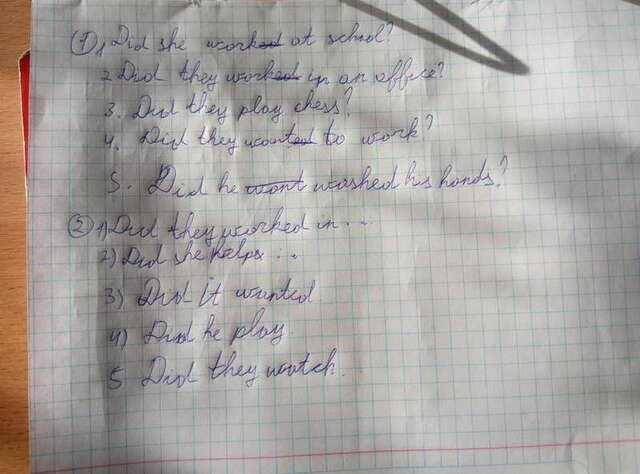 ① 1. Did she worked at school?
2 Did they worked in an office?
3. Did they play chess?
4. Did they wanted to work?
5. Did he want washed his hands?
② 1) Did they worked in...
2) Did she helps...
3) Did it wanted
4) Did he play.
5 Did they watch.